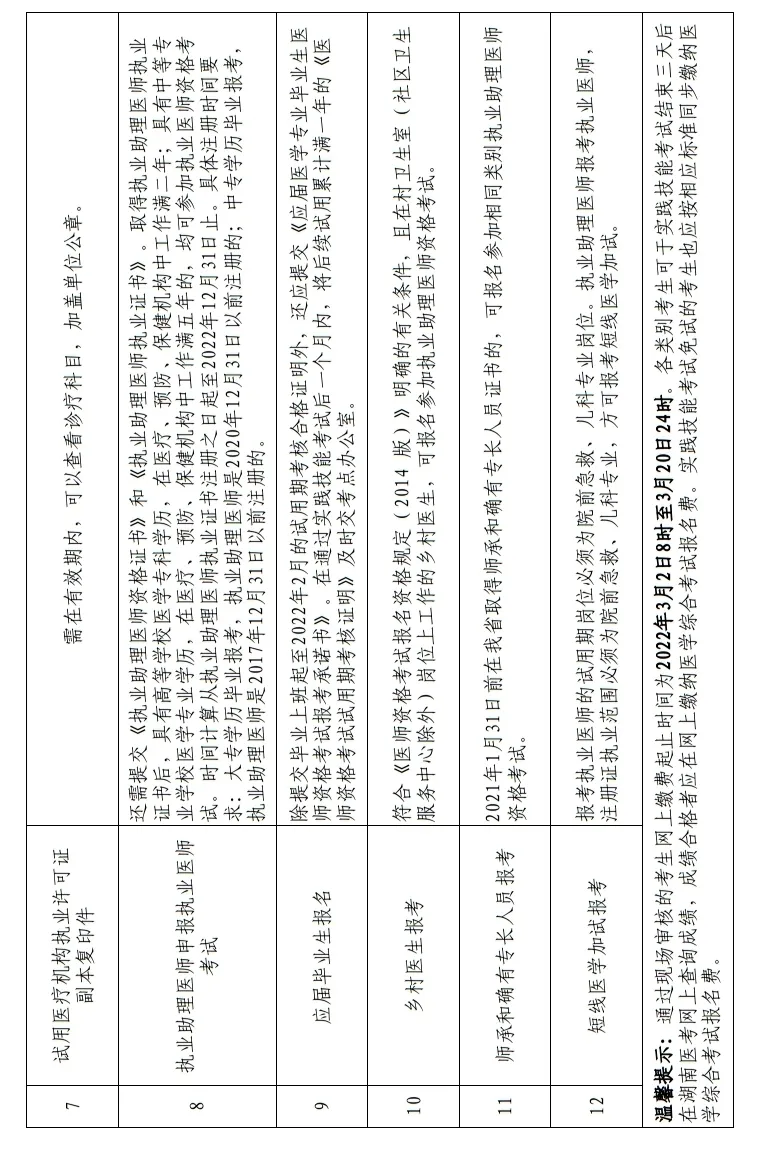 7
试用医疗机构执业许可证
副本复印件
需在有效期内，可以查看诊疗科目，加盖单位公章。
8
执业助理医师申报执业医师
考试
还需提交《执业助理医师资格证书》和《执业助理医师执业证书》。取得执业助理医师执业
证书后，具有高等学校医学专科学历，在医疗、预防、保健机构中工作满二年；具有中等专
业学校医学专业学历，在医疗、预防、保健机构中工作满五年的，均可参加执业医师资格考
试。时间计算从执业助理医师执业证书注册之日起至2022年12月31日止。具体注册时间要
求：大专学历毕业报考，执业助理医师是2020年12月31日以前注册的；中专学历毕业报考，
执业助理医师是2017年12月31日以前注册的。
9
应届毕业生报名
除提交毕业上班起至2022年2月的试用期考核合格证明外，还应提交《应届医学专业毕业生医
师资格考试报考承诺书》。在通过实践技能考试后一个月内，将后续试用累计满一年的《医
师资格考试试用期考核证明》及时交考点办公室。
10
乡村医生报考
符合《医师资格考试报名资格规定（2014 版）》明确的有关条件，且在村卫生室（社区卫生
服务中心除外）岗位上工作的乡村医生，可报名参加执业助理医师资格考试。
11
师承和确有专长人员报考
2021年1月31日前在我省取得师承和确有专长人员证书的，可报名参加相同类别执业助理医师
资格考试。
12
短线医学加试报考
报考执业医师的试用期岗位必须为院前急救、儿科专业岗位。执业助理医师报考执业医师，
注册证执业范围必须为院前急救、儿科专业，方可报考短线医学加试。
温馨提示：通过现场审核的考生网上缴费起止时间为2022年3月2日8时至3月20日24时。各类别考生可于实践技能考试结束三天后
在湖南医考网上查询成绩，成绩合格者应在网上缴纳医学综合考试报名费。实践技能考试免试的考生也应按相应标准同步缴纳医
学综合考试报名费。